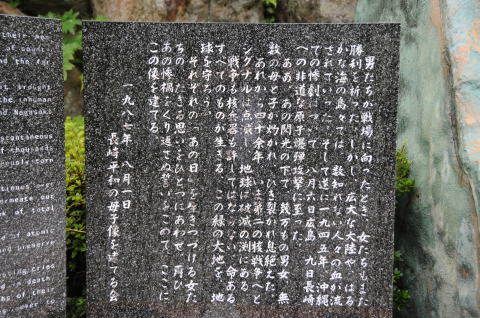 男たちが戦場に向ったとき、女たちもまた
勝利を祈った。しかし、広大な大陸や、はる
かな海の島々では、数知れない人々の血が流
されていった。そして遂に一九四五年、沖縄
での惨劇につづいて、八月六日広島、九日長崎
への非道な原子爆弾攻撃に至った。
ああ、あの閃光の下で、幾万もの男女、無
数の母と子が灼かれ、ひき裂かれ息絶えた。
あれから四十余年、いま第二の核戦争へと
シグナルは点滅し、地球は破滅の淵にある。
戦争も核兵器も許してはならない。命ある
すべてのものが生きる、この緑の大地を、地
球を守ろう。
それぞれの「あの日」を生きつづける女た
ちの、たぎる思いをひとつにあわせ、再び
あの惨禍をくり返さぬ誓いをこめて、ここに
この像を建てる。
一九八七年 八月一日
長崎平和の母子像を建てる会
their men
of count-
and the far
brought
the inhuman
Nagasaki